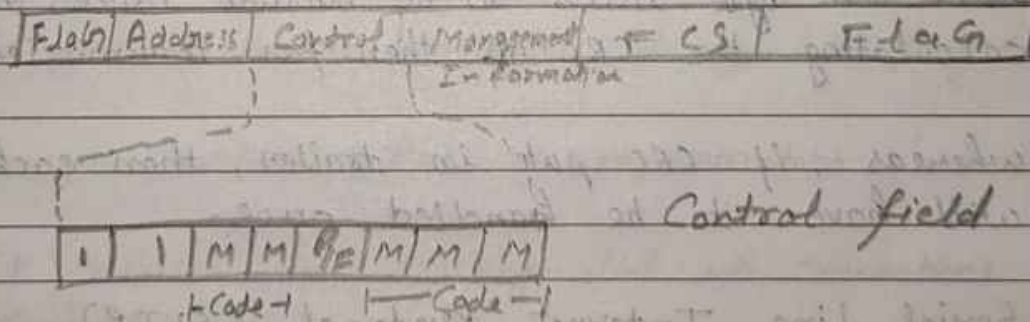 Flag Address Control Management FCS Flag
Information
Control field
1 1 M M P/F M M M
Code Code